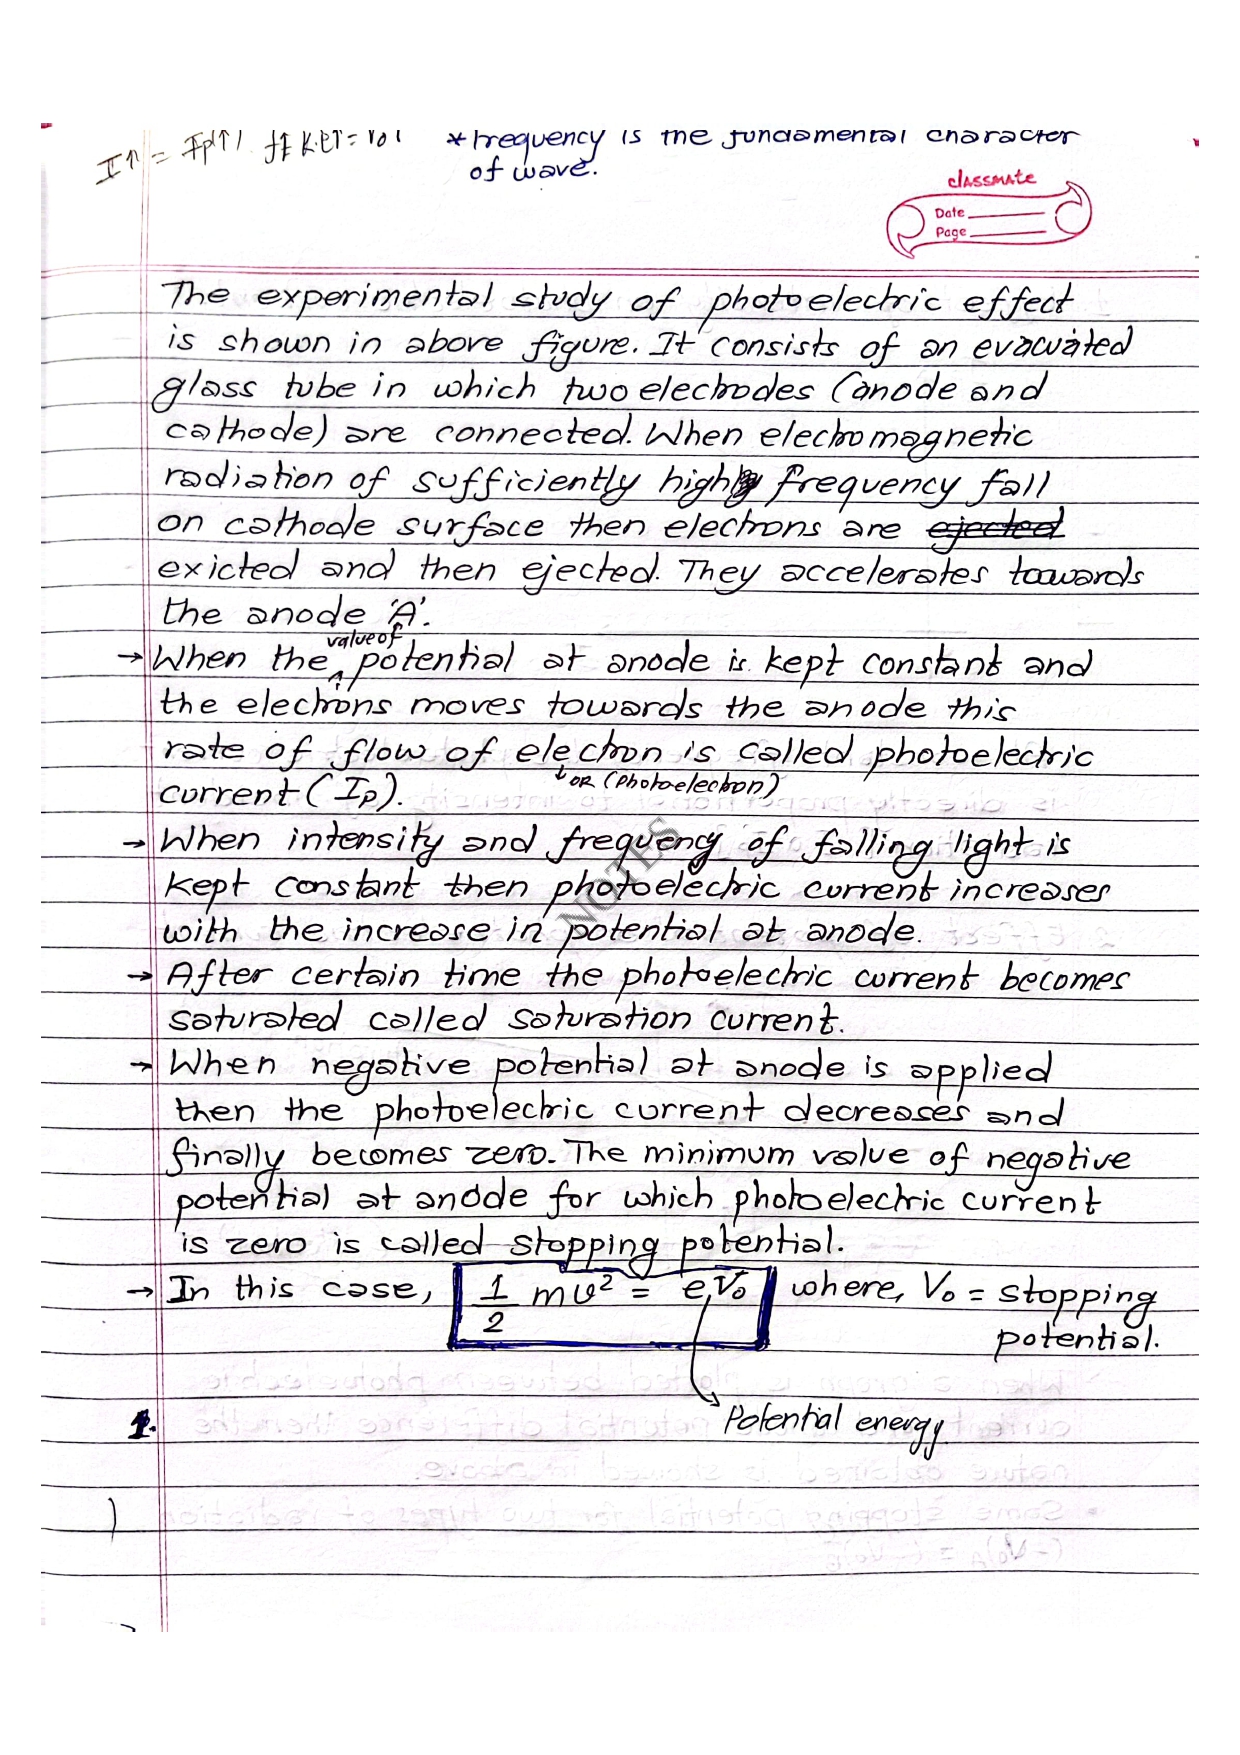 I↑ = Ip(↑)
* Frequency is the fundamental character
of wave.
classmate
Date
Page
The experimental study of photoelectric effect
is shown in above figure. It consists of an evacuated
glass tube in which two electrodes (anode and
cathode) are connected. When electromagnetic
radiation of sufficiently high frequency fall
on cathode surface then electrons are ejected
exicted and then ejected. They accelerates towards
the anode 'A'.
value of
→ When the potential at anode is kept constant and
the electrons moves towards the anode this
rate of flow of electron is called photoelectric
↓ OR (Photoelectron)
current (Ip).
→ When intensity and frequency of falling light is
kept constant then photoelectric current increases
with the increase in potential at anode.
NOTES
→ After certain time the photoelectric current becomes
saturated called saturation current.
→ When negative potential at anode is applied
then the photoelectric current decreases and
finally becomes zero. The minimum value of negative
potential at anode for which photoelectric current
is zero is called stopping potential.
→ In this case, 1/2 mv² = eV₀ where, V₀ = stopping
potential.
Potential energy
1.